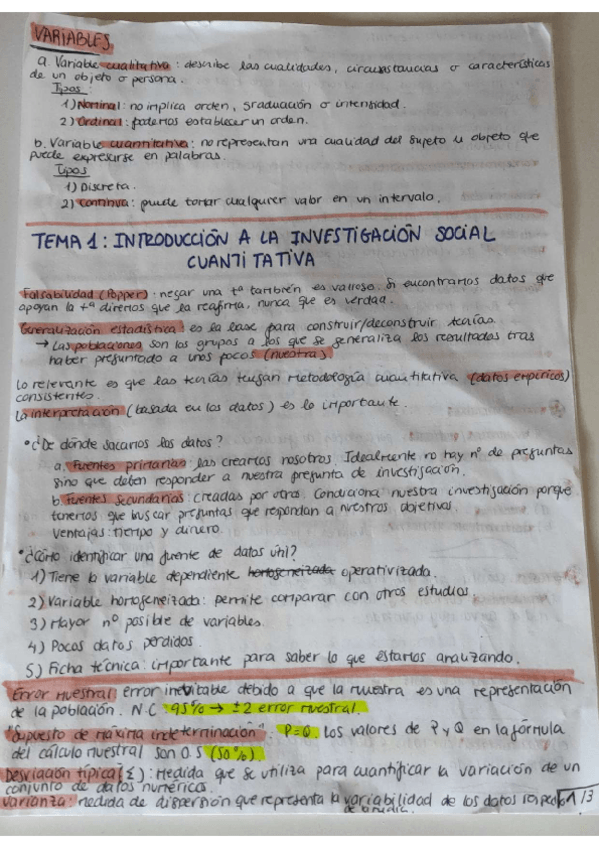 VARIABLES
a. Variable cualitativa: describe las cualidades, circunstancias o características
de un objeto o persona.
Tipos:
1) Nominal: no implica orden, graduación o intensidad.
2) Ordinal: podemos establecer un orden.
b. Variable cuantitativa: no representan una cualidad del sujeto u objeto que
puede expresarse en palabras.
Tipos
1) Discreta.
2) Continua: puede tomar cualquier valor en un intervalo.
TEMA 1: INTRODUCCIÓN A LA INVESTIGACIÓN SOCIAL
CUANTITATIVA
Falsabilidad (Popper): negar una tª también es valioso. Si encontramos datos que
apoyan la tª diremos que la reafirma, nunca que es verdad.
Generalización estadística es la base para construir/deconstruir teorías.
→ Las poblaciones son los grupos a los que se generaliza los resultados tras
haber preguntado a unos pocos (muestra)
Lo relevante es que las teorías tengan metodología cuantitativa (datos empíricos)
consistentes.
La interpretación (basada en los datos) es lo importante.
• ¿De dónde sacamos los datos?
a. Fuentes primarias: las creamos nosotros. Idealmente no hay nº de preguntas
sino que deben responder a nuestra pregunta de investigación.
b. Fuentes secundarias: creadas por otra. Condiciona nuestra investigación porque
tenemos que buscar preguntas que respondan a nuestros objetivos.
Ventajas: tiempo y dinero.
• ¿Cómo identificar una fuente de datos útil?
1) Tiene la variable dependiente homogeneizada operativizada.
2) Variable homogeneizada: permite comparar con otros estudios.
3) Mayor nº posible de variables.
4) Pocos datos perdidos.
5) Ficha técnica: importante para saber lo que estamos analizando.
Error muestral: error inevitable debido a que la muestra es una representación
de la población. N.C 95% → ±2 error muestral.
"Supuesto de máxima indeterminación". P=Q. Los valores de P y Q en la fórmula
del cálculo muestral son 0.5 (50%)
Desviación típica (Σ): Medida que se utiliza para cuantificar la variación de un
conjunto de datos numéricos.
Varianza: medida de dispersión que representa la variabilidad de los datos
1/3